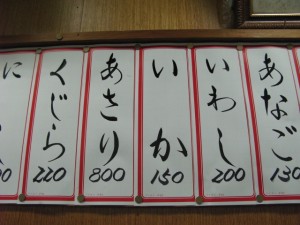 あなご
130
いわし
200
いか
150
あさり
800
くじら
220
に